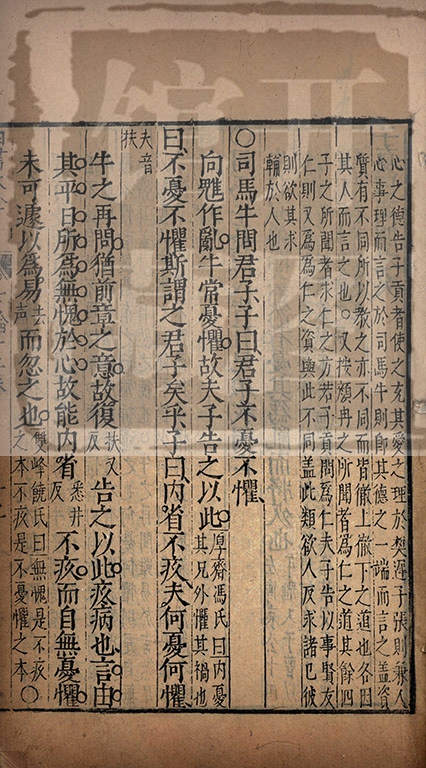 心之德告子貢者使之充其愛之理於樊遲子張則兼人
心事理而言之於司馬牛則卽其德之一端而言之蓋資
質有不同所以教之亦不同而皆徹上徹下之道也各因
其人而言之也。又按顏冉之所聞者爲仁之道其餘四
子之所聞者求仁之方若子貢問爲仁夫子告以事賢友
仁則又爲爲仁之資與此不同盖此類欲人反求諸已彼
則欲其求
輔於人也
〇司馬牛問君子子曰君子不憂不懼
向魋作亂牛常憂懼故夫子告之以此厚齋馮氏曰内憂其兄外懼其禍也
曰不憂不懼斯謂之君子矣乎子曰内省不疚夫何憂何懼
夫音扶
牛之再問猶前章之意故復扶又反告之以此疚病也言由
其平日所為無愧於心故能内省悉井反不疚而自無憂懼
未可遽以為易去聲而忽之也雙峰饒氏曰無愧是不疚之本不疚是不憂懼之本〇